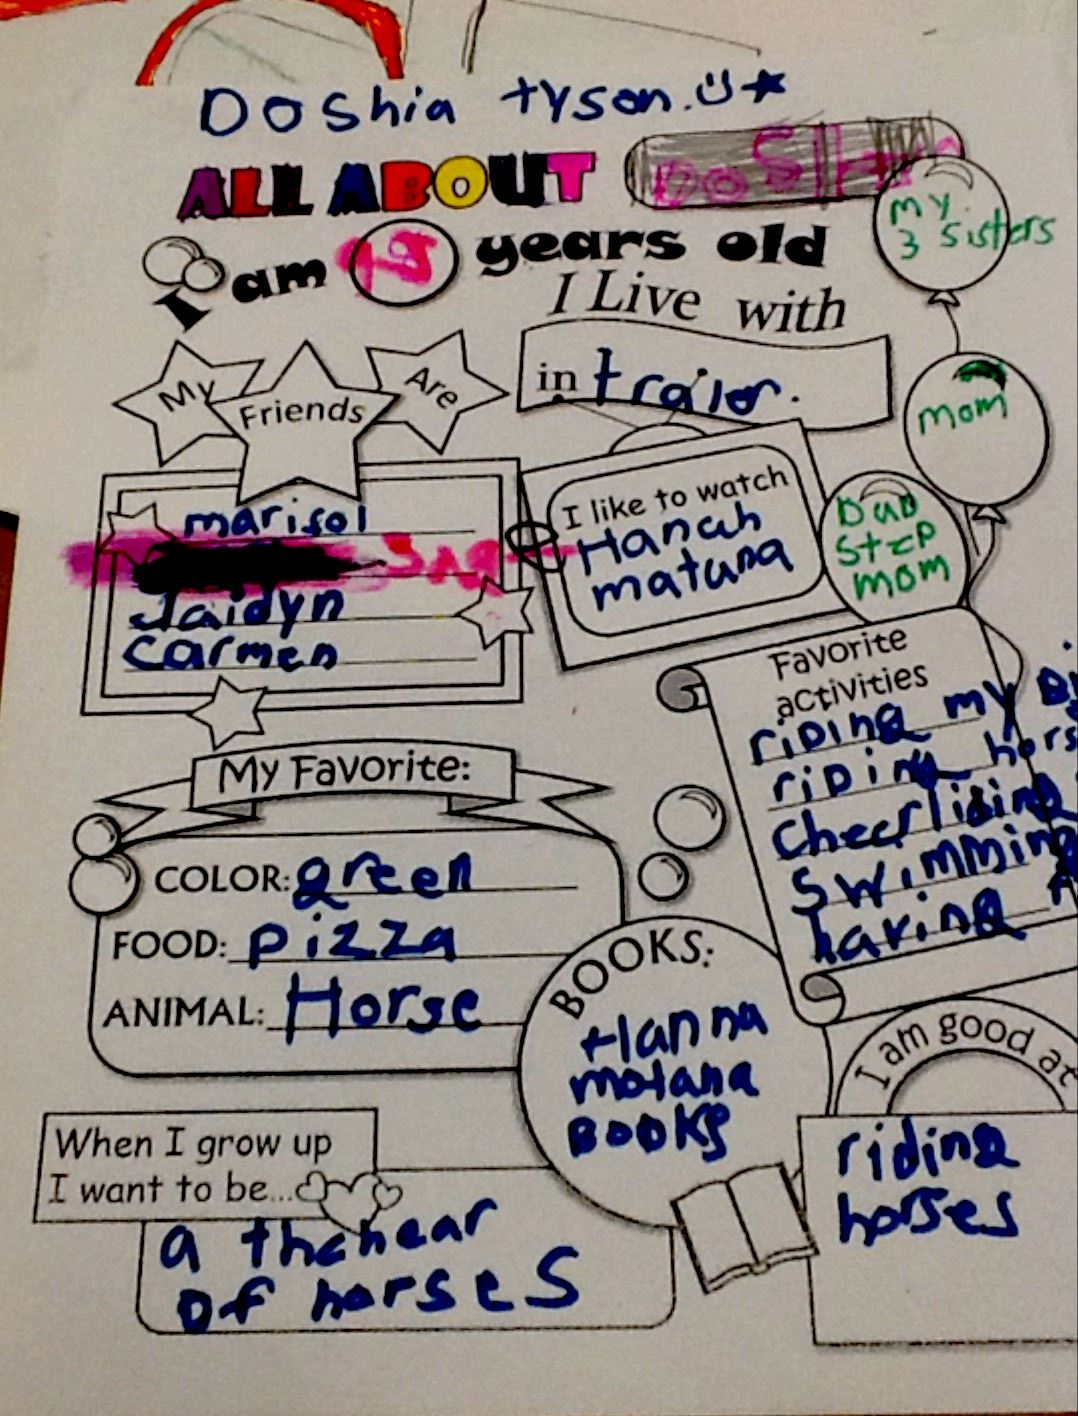 Doshia tyson.
ALL ABOUT DoSHia
I am years old
my
3 sisters
I Live with
in trailor.
mom
Dad
Step
mom
My Friends Are
marisol
Jaidyn
Carmen
I like to watch
Hanah
matana
Favorite
activities
riding my
riding
cheerliding
swimming
having
My Favorite:
COLOR: green
FOOD: pizza
ANIMAL: Horse
BOOKS:
Hanna
motana
BOOKS
I am good at
riding
horses
When I grow up
I want to be...
a
of horses